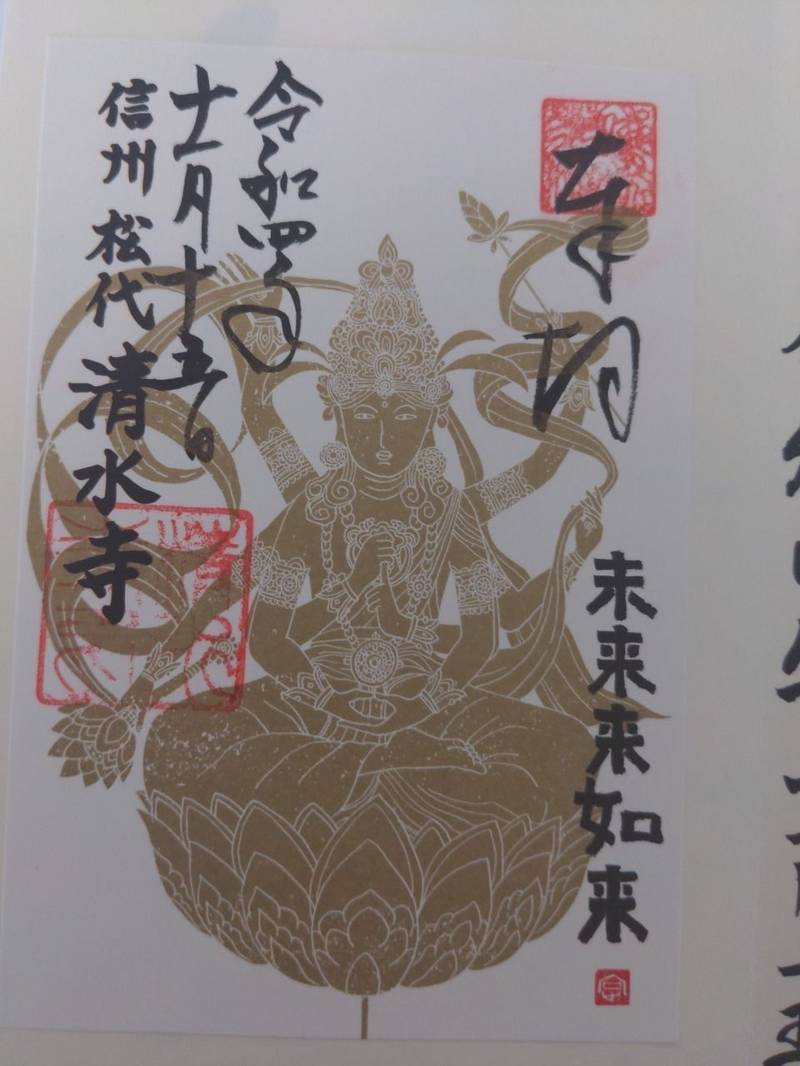 奉拝
未来来如来
令和四年
十一月十五日
信州 松代 清水寺